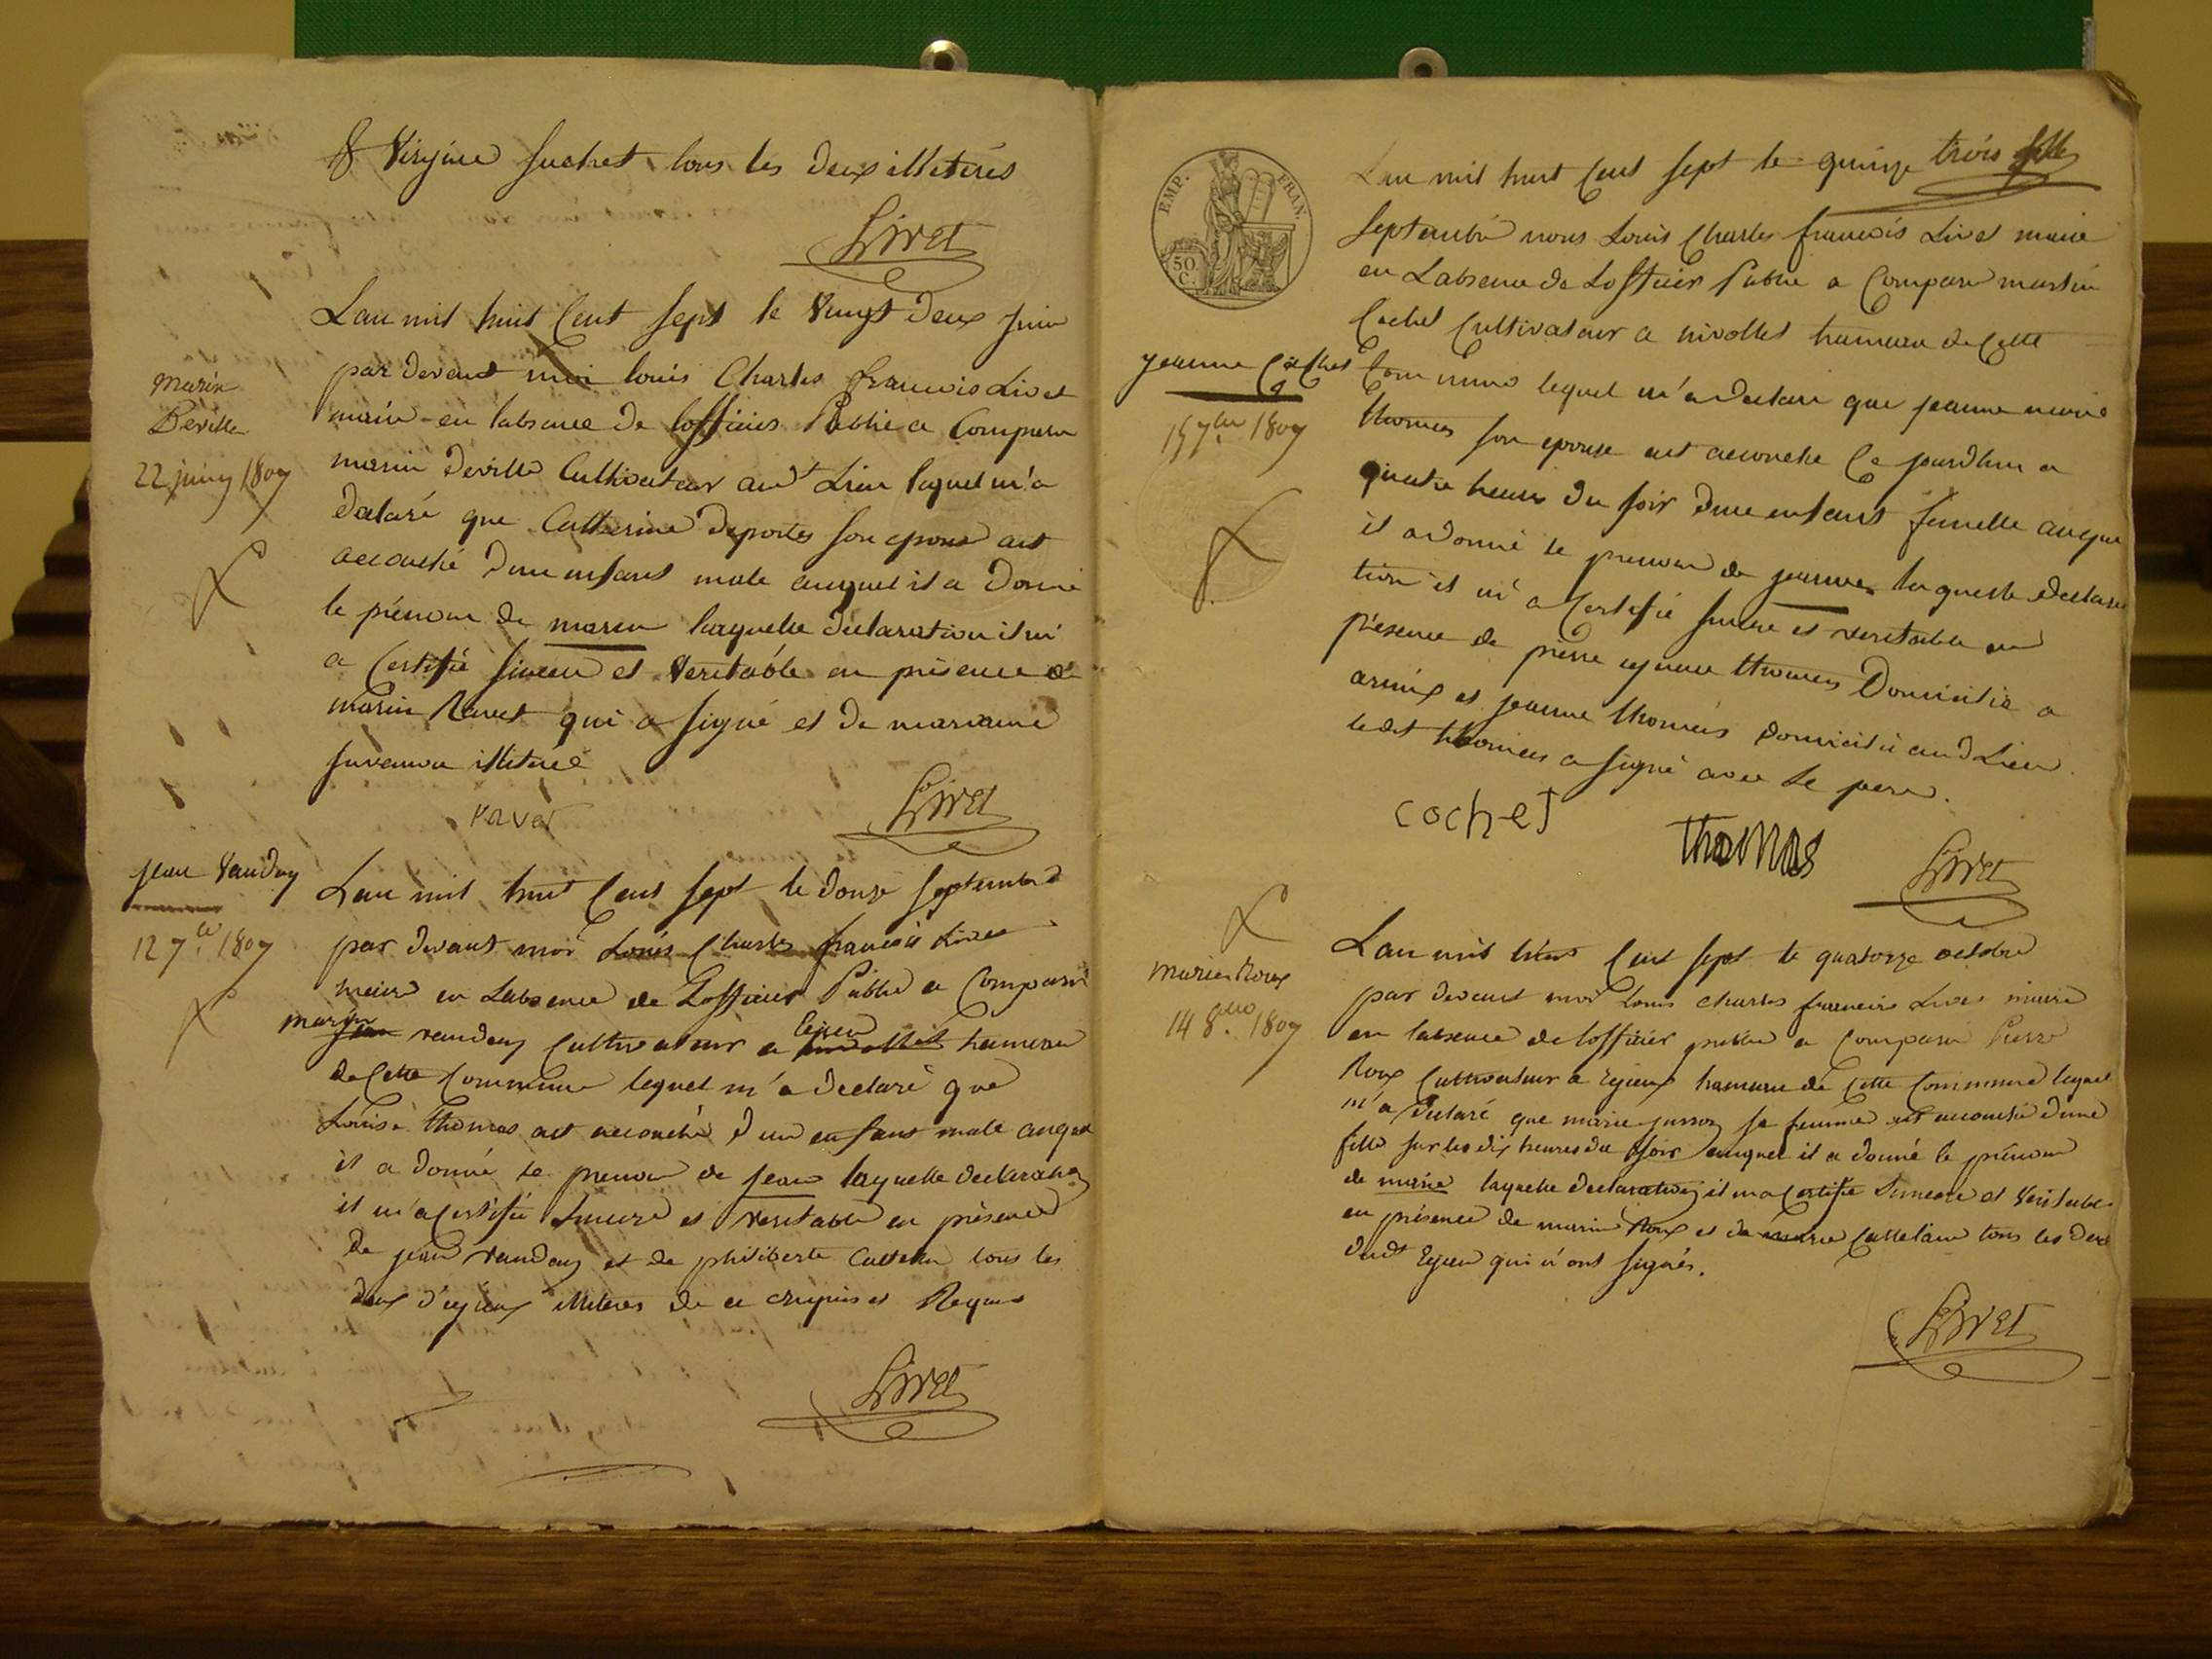 & Virginie Suchet tous les deux illeterés
Livet
Marin
Deville
22 juin 1807
L'an mil huit cent sept le vingt deux juin
par devant moi louis Charles francois Livet
maire en l'absence de lofficier Public a Comparu
marin deville Cultivateur aud.t Lieu lequel m'a
declaré que Catherine deportes son epouse est
accouché d'un enfant male auquel il a donné
le prénom de marin laquelle declaration il m'
a Certifié sincere et Veritable en présence de
marin Ravet qui a signé et de marianne
illiteré
raver
Livet
jean Vauday
12 7.bre 1807
L'an mil huit Cent sept le douze septembre
par devant moi Louis Charles francois Livet
maire en Labsence de Lofficier Public a Comparu
marin
jean vauday Cultivateur a hameau
de Cette Commune lequel m'a declaré que
Louise thomas est accouché d'un enfant male auquel
il a donné le prenom de jean laquelle declaration
il m'a certifié sincere et veritable en présence
de jean vauday et de philiberte tous les
deux d'ejeux illiteres de ce enquis et Requis
Livet
EMP. FRAN.
50
C.
trois
jeanne Cochet
15 7.bre 1807
L'an mil huit Cent sept le quinze
septembre nous Louis Charles francois Livet maire
en Labsence de Lofficier Public a Comparu martin
Cochet Cultivateur a nivollet hameau de Cette
Commune lequel m'a declaré que jeanne marie
thomas son epouse est accouché Ce jourdhui a
quatre heures du soir d'une enfant femelle auquel
il a donné le prenom de jeanne laquelle declara
tion il m'a Certifié sincere et veritable en
présence de pierre thomas Domicilié a
et jeanne thomas domicilié aud Lieu
ledit thomas a signé avec le pere.
cochet
thomas
Livet
marie Roux
14 8.bre 1807
L'an mil huit Cent sept le quatorze octobre
par devant moi Louis charles francois Livet maire
en labsence de lofficier public a Comparu Pierre
Roux Cultivateur a Ejeux hameau de Cette Commune lequel
m'a declaré que marie jusson sa femme est accouchée d'une
fille sur les dix heures du soir auquel il a donné le prénom
de marie laquelle declaration il m'a Certifié Sincere et Veritable
en présence de marin Roux et de marie tous les deux
dud.t Ejeux qui n'ont signés.
Livet